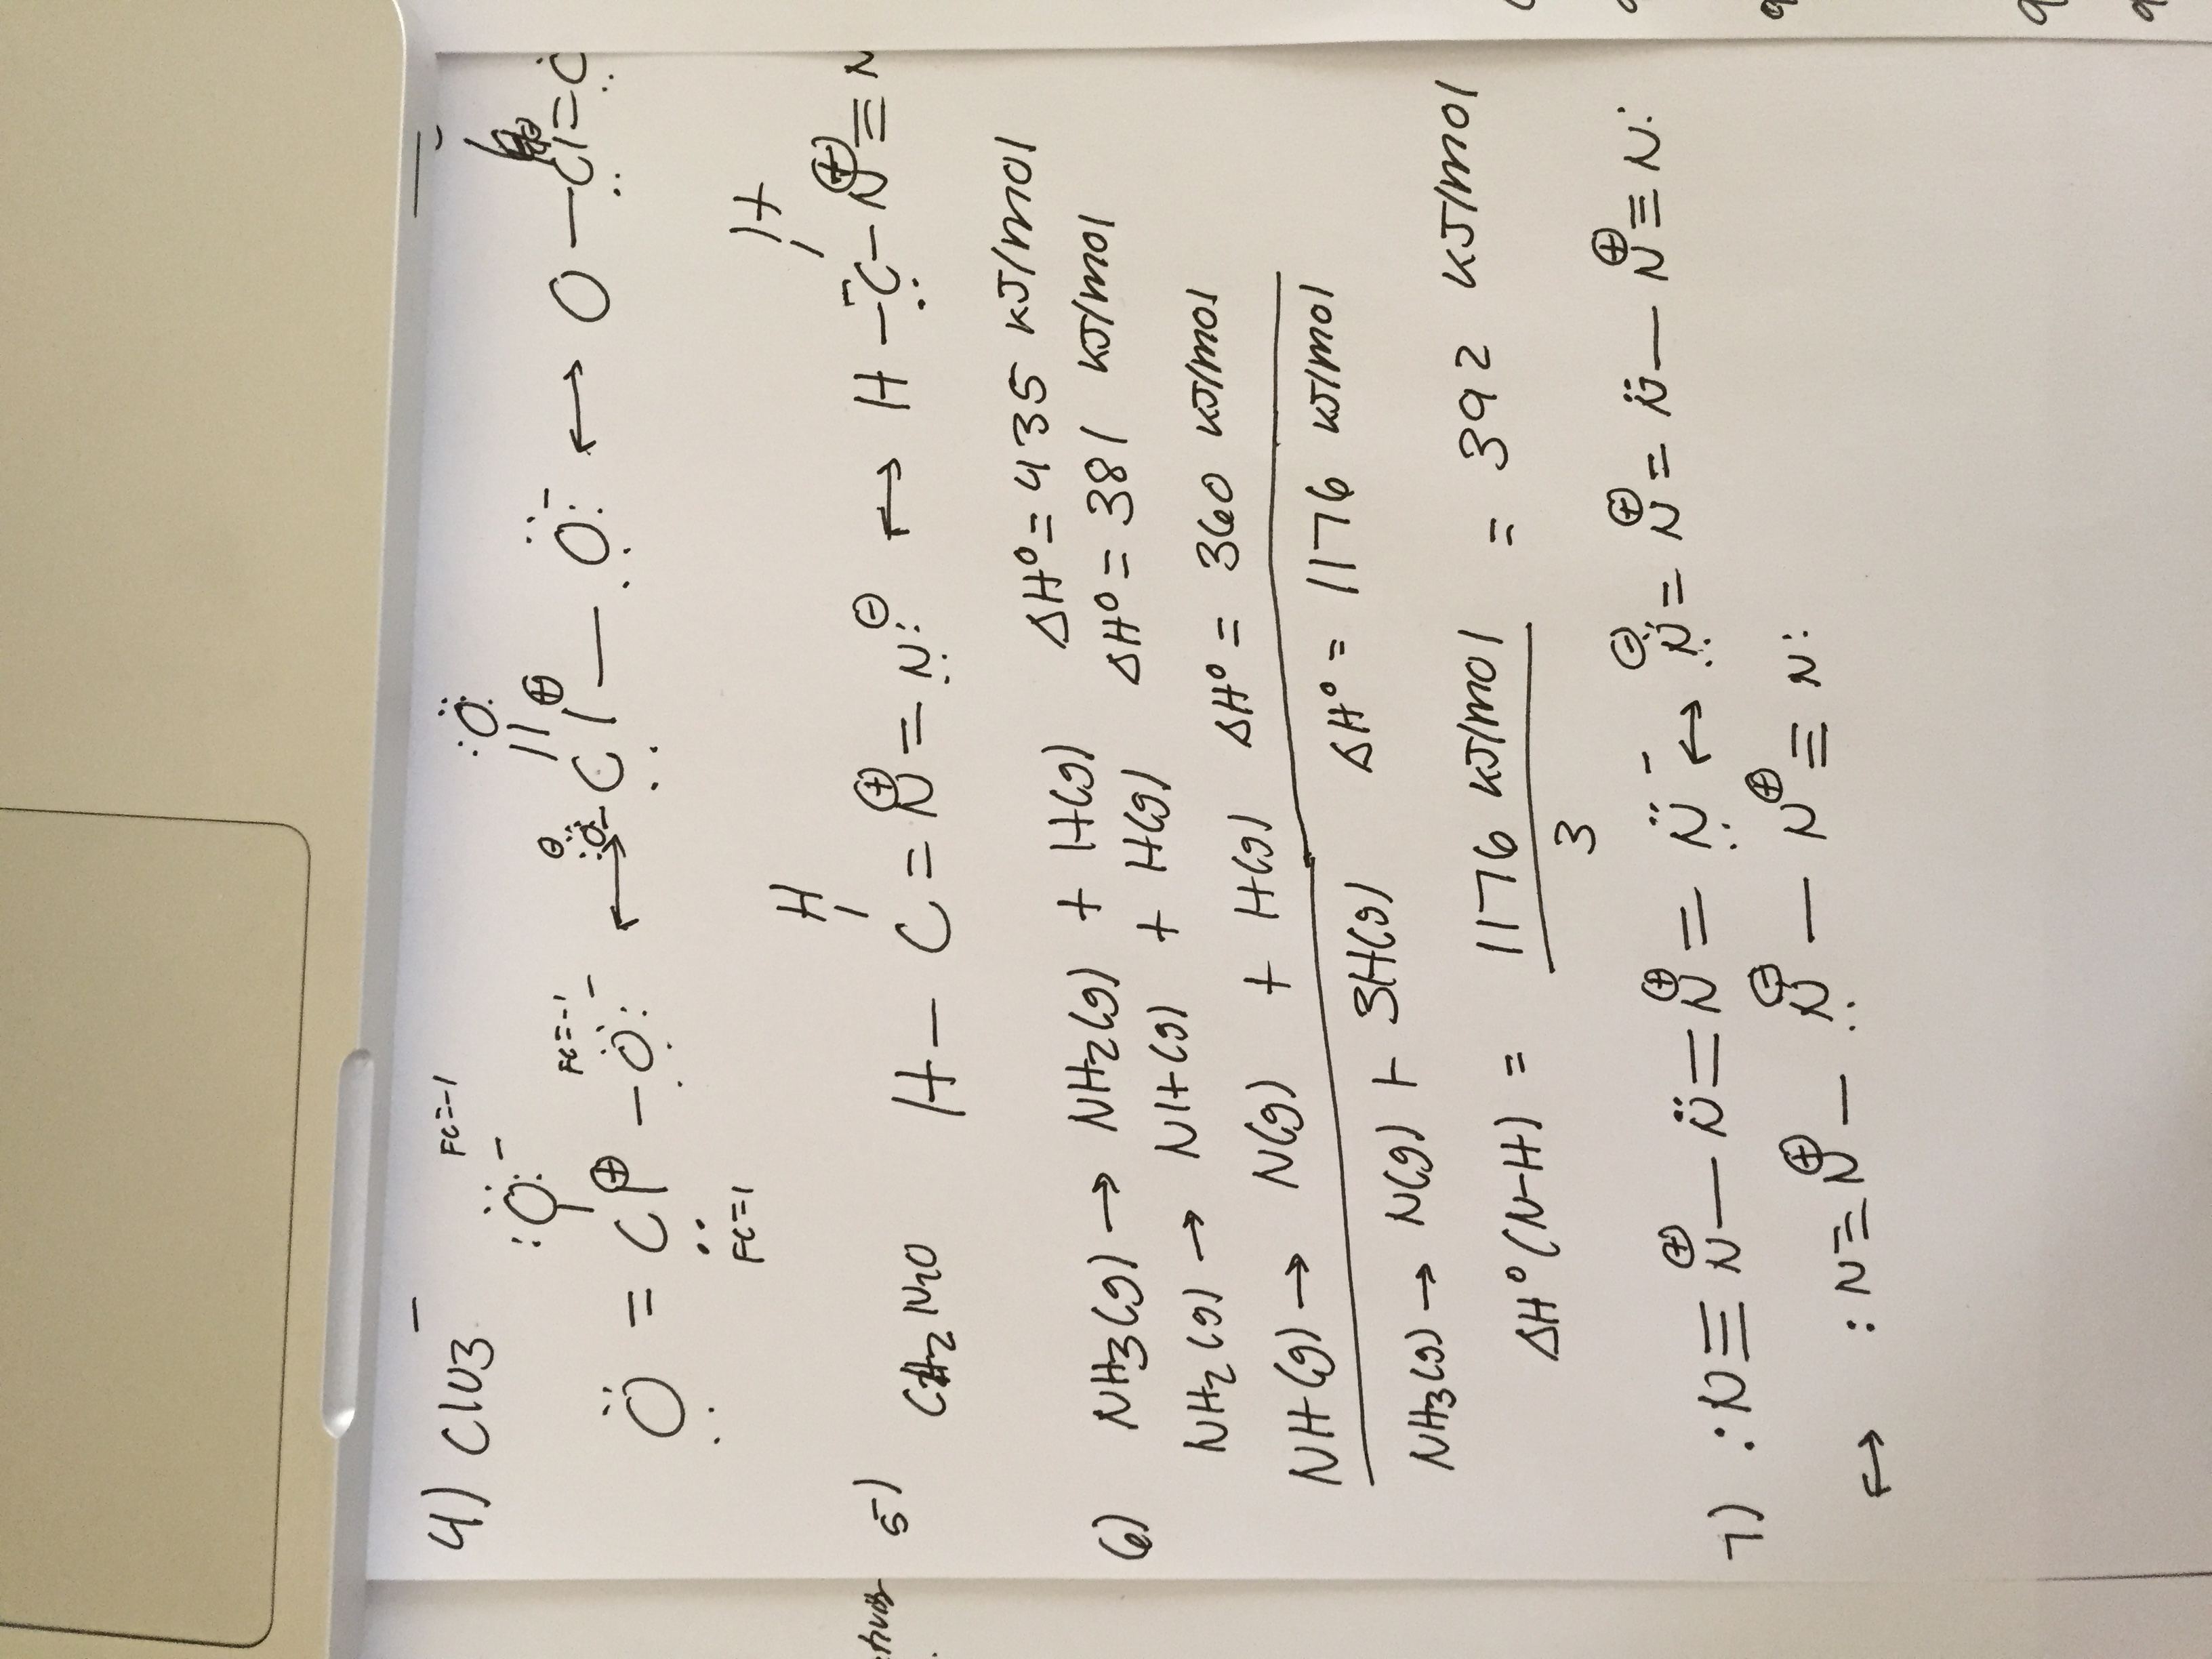 4) ClO3 -
FC=-1
:Ö: -
FC=-1
Ö = Cl ⊕ - Ö: - ↔ ⊖ :Ö - Cl ⊕ - Ö: - ↔ O - Cl = O
:Ö:
FC=1
5) CH2N2
H
H - C = N ⊕ = N: ⊖ ↔ H - C - N ⊕ ≡ N
H
6) NH3(g) → NH2(g) + H(g) ΔH° = 435 kJ/mol
NH2(g) → NH(g) + H(g) ΔH° = 381 kJ/mol
NH(g) → N(g) + H(g) ΔH° = 360 kJ/mol
NH3(g) → N(g) + 3H(g) ΔH° = 1176 kJ/mol
ΔH°(N-H) = 1176 kJ/mol = 392 kJ/mol
3
7) :N ≡ N ⊕ - N̈ = N ⊕ = N̈ - ↔ N̈ ⊖ = N ⊕ = N̈ - N ⊕ ≡ N:
↔ :N ≡ N ⊕ - N ⊖ - N ⊕ ≡ N: